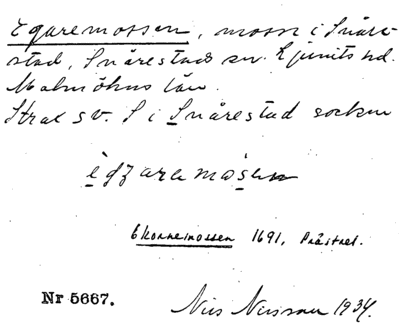 Egaremossen, mosse i Snåre-
stad, Snårestads sn. Ljunits hd.
Malmöhus län.
Strax sv. S i Snårestad socken
Ekorremossen 1691, Prästrel.
Nr 5667. Nils Nilsson 1934.